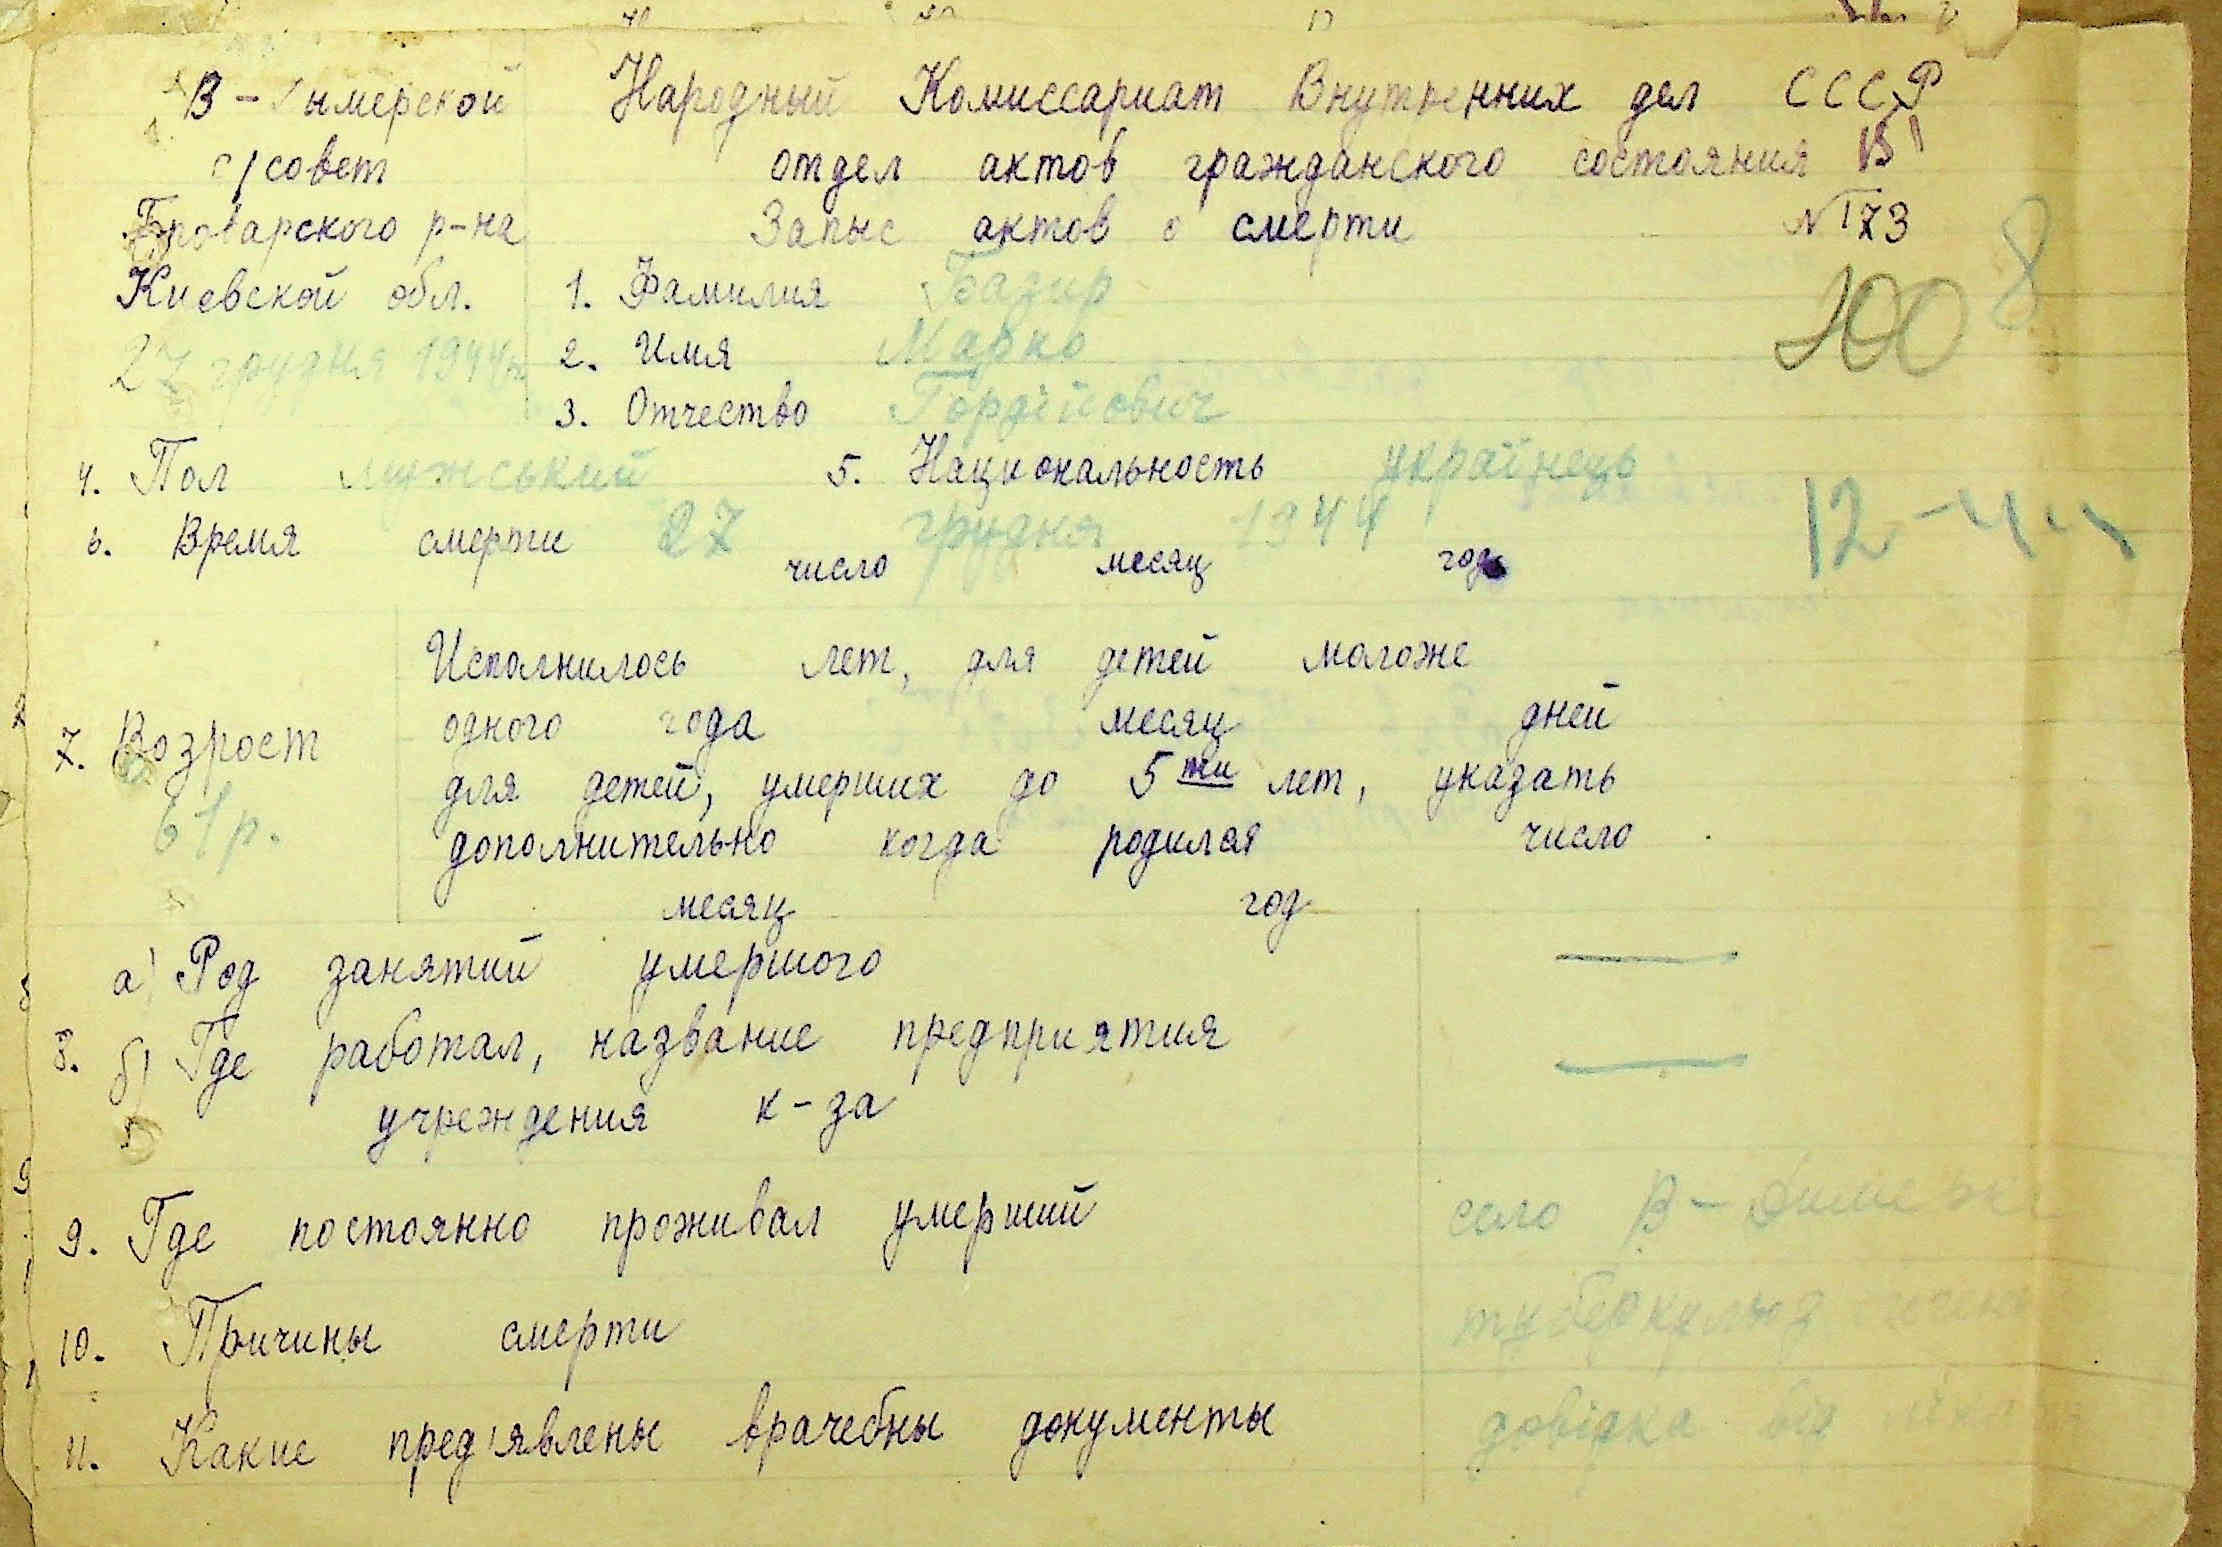 В-Дымерской
с/совет
Броварского р-на
Киевской обл.
27 грудня 1944 р.
Народный Комиссариат Внутренних дел СССР
отдел актов гражданского состояния
Запыс актов о смерти № 73
1. Фамилия Базир
2. Имя Марко
3. Отчество Гордійович
4. Пол мужський 5. Национальность українець
6. Время смерти 27 грудня 1944
число месяц год
12
Исполнилось лет, для детей моложе
одного года месяц дней
7. Возрост
61 р.
для детей, умерших до 5ти лет, указать
дополнительно когда родился число
месяц год
8. а) Род занятий умершого —
б) Где работал, название предприятия —
учреждения к-за
9. Где постоянно проживал умерший село В-Димерка
10. Причины смерти туберкульоз
11. Какие пред'явлены врачебны документы довідка від